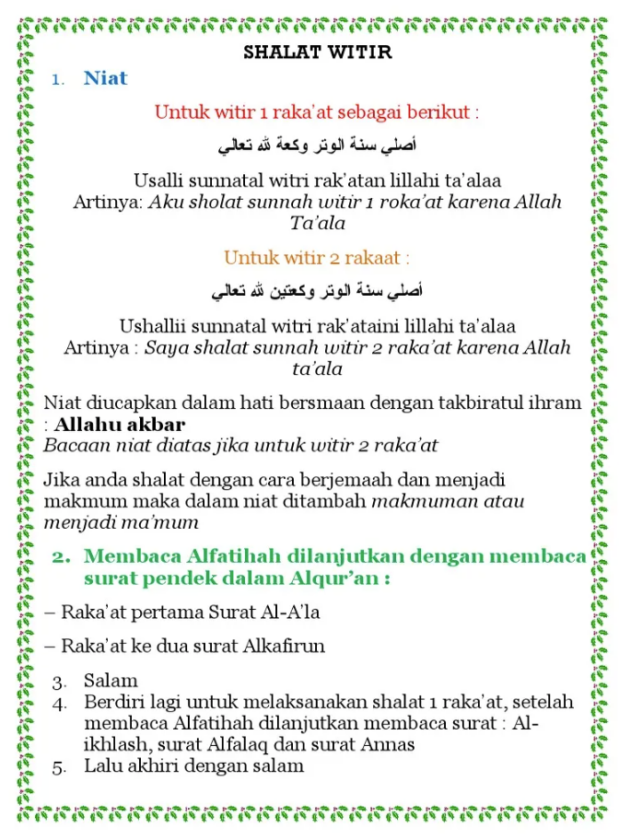 SHALAT WITIR
1. Niat
Untuk witir 1 raka'at sebagai berikut :
أصلي سنة الوتر وكعة لله تعالي
Usalli sunnatal witri rak'atan lillahi ta'alaa
Artinya: Aku sholat sunnah witir 1 roka'at karena Allah
Ta'ala
Untuk witir 2 rakaat :
أصلي سنة الوتر وكعتين لله تعالي
Ushallii sunnatal witri rak'ataini lillahi ta'alaa
Artinya : Saya shalat sunnah witir 2 raka'at karena Allah
ta'ala
Niat diucapkan dalam hati bersmaan dengan takbiratul ihram
: Allahu akbar
Bacaan niat diatas jika untuk witir 2 raka'at
Jika anda shalat dengan cara berjemaah dan menjadi
makmum maka dalam niat ditambah makmuman atau
menjadi ma'mum
2. Membaca Alfatihah dilanjutkan dengan membaca
surat pendek dalam Alqur'an :
– Raka'at pertama Surat Al-A'la
– Raka'at ke dua surat Alkafirun
3. Salam
4. Berdiri lagi untuk melaksanakan shalat 1 raka'at, setelah
membaca Alfatihah dilanjutkan membaca surat : Al-
ikhlash, surat Alfalaq dan surat Annas
5. Lalu akhiri dengan salam